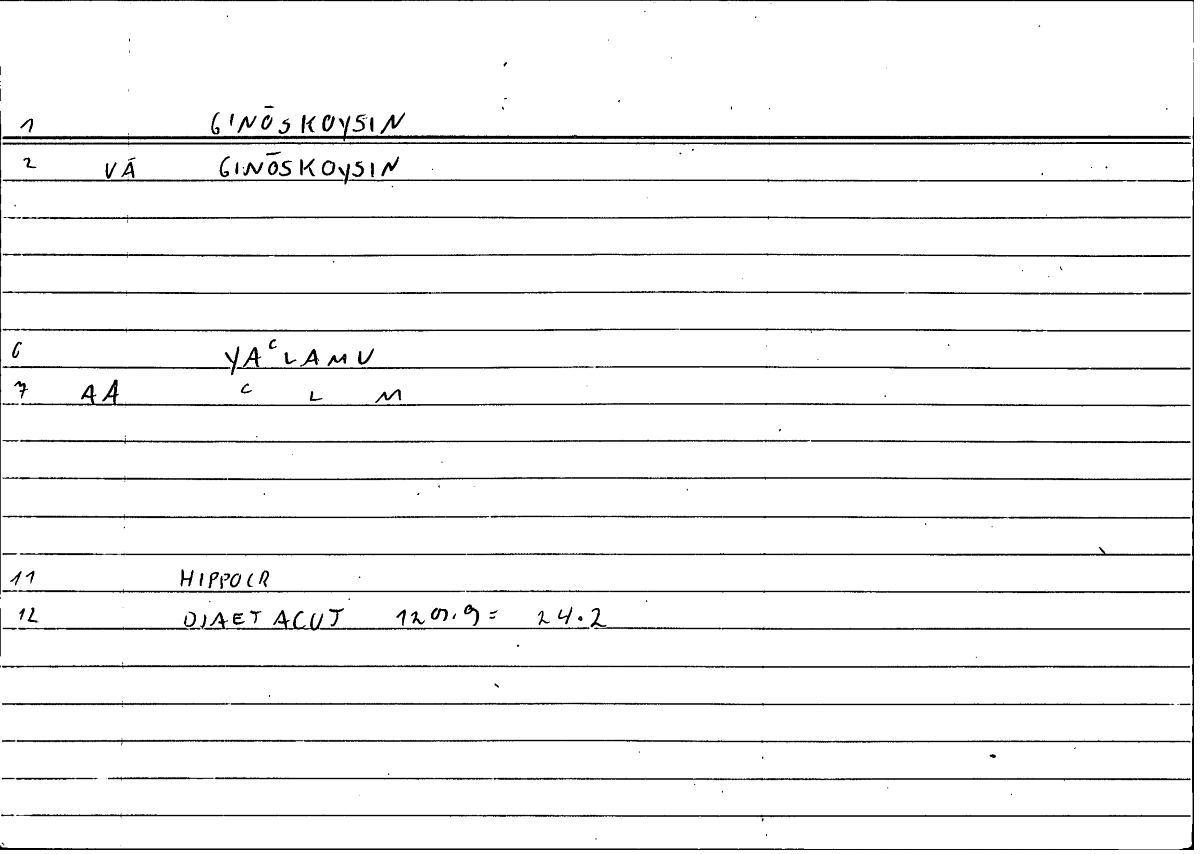 1 GINŌSKOYSIN
2 VĀ GINŌSKOYSIN
6 YAᶜLAMU
7 AA C L M
11 HIPPOCR
12 DIAET ACUT 120,9 = 24.2